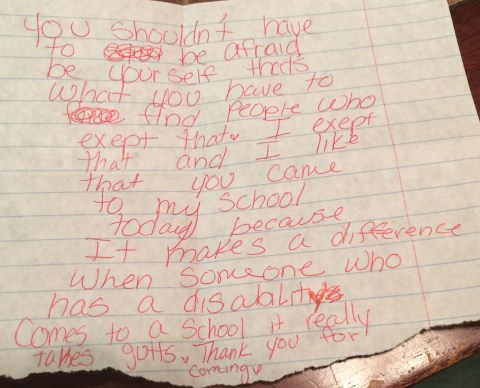 you shouldn't have
to be afraid
be yourself thats
what you have to
find people who
exept that. I exept
that and I like
that you came
to my school
today because
It makes a difference
when someone who
has a disability
Comes to a school it really
takes gutts. Thank you for
coming.